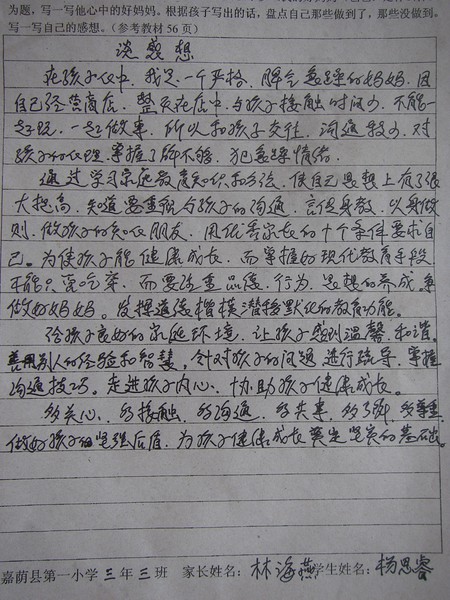 为题，写一写他心中的好妈妈。根据孩子写出的话，盘点自己那些做到了，那些没做到。
写一写自己的感想。（参考教材 56 页）
谈感想
在孩子心中，我是一个严格，脾气急躁的妈妈，因
自己经营商店，整天在店中，与孩子接触时间少，不能一
起玩，一起做事，所以和孩子交往，沟通较少，对
孩子的心理，掌握了解不够，犯急躁情绪。
通过学习家庭教育知识和方法，使自己思想上有了很
大提高，知道要重视与孩子的沟通，言传身教，以身做
则，做孩子的知心朋友，用优秀家长的十个条件要求自
己。为使孩子能健康成长，而掌握好现代教育手段
不能只管吃穿，而要注重品德，行为，思想的养成，争
做好妈妈。发挥道德楷模潜移默化的教育功能。
给孩子良好的家庭环境，让孩子感到温馨，和谐。
善用别人的经验和智慧，针对孩子的问题进行疏导，掌握
沟通技巧。走进孩子内心，协助孩子健康成长。
多关心，多接触，多沟通，多夫妻，多了解，多尊重，
做好孩子的坚强后盾，为孩子健康成长奠定坚实的基础。
嘉荫县第一小学 三 年 三 班 家长姓名：林海燕 学生姓名：杨思睿